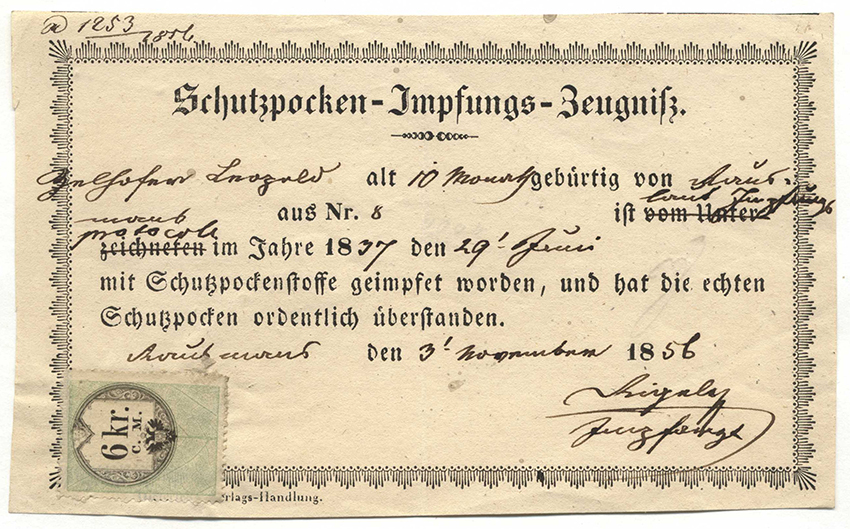 1253
1856
Schutzpocken-Impfungs-Zeugniß.
Leopold alt 10 Monath gebürtig von
laut Impfungs
aus Nr. 8 ist vom Unter-
protocoll
zeichneten im Jahre 1837 den 29t Juni
mit Schutzpockenstoffe geimpfet worden, und hat die echten
Schutzpocken ordentlich überstanden.
den 3t November 1856
Impfarzt
6 kr.
C. M.
rlags-Handlung.